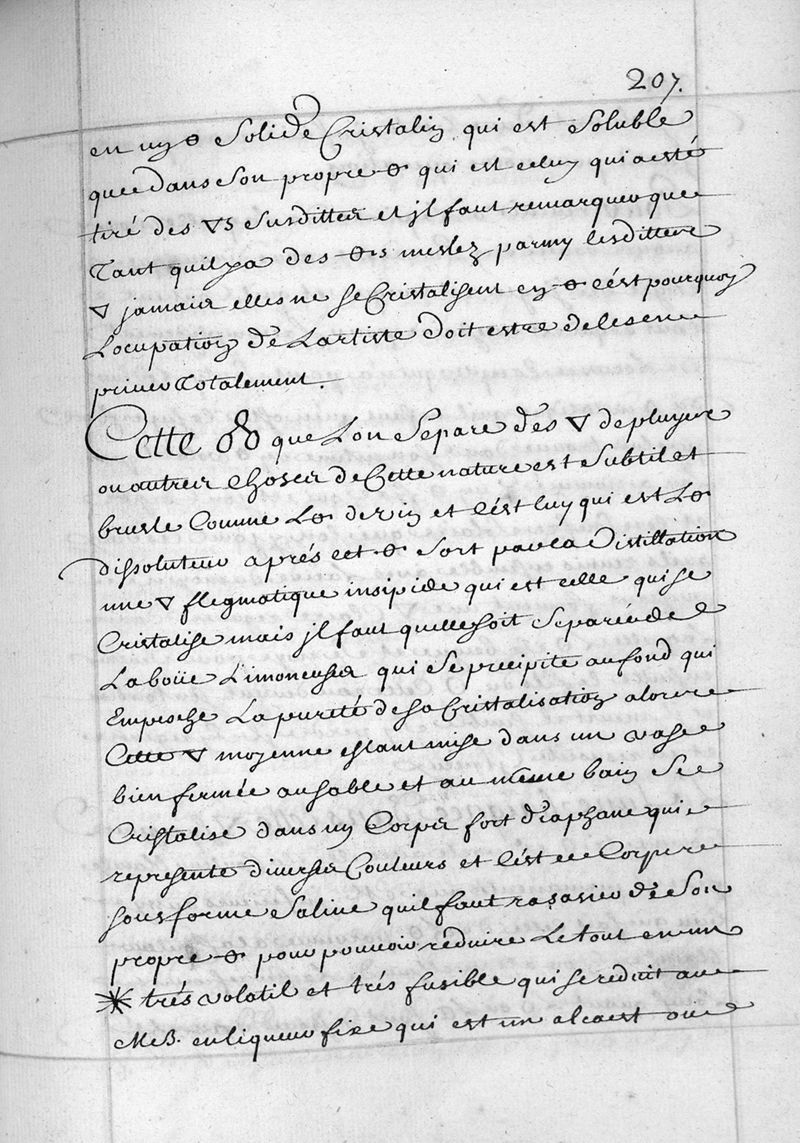 207.
en un 🜔 Solide Cristalin qui est Soluble
que dans Son propre 🜔 qui est celuy qui a esté
tiré des 🜄s Susdittes et jl faut remarquer que
Tant quil ya des 🜔s meslez parmy lesdittes
🜄 jamais elles ne se Cristalisent en 🜔 c'ést pourquoy
Locupation de Lartiste doit estre de les en
priver Totalement.
Cette que Lon Separe des 🜄 de pluyes
ou autres choses de Cette nature est Subtil et
brusle Comme de vin et c'ést luy qui est Le
dissoluteur aprés cet 🜔 sort par la Distillation
une 🜄 flegmatique insipide qui est celle qui se
Cristalise mais jl faut quelle soit Separée de
La boüe Limoneuse qui se precipite au fond qui
Empesche La pureté de sa Cristalisation alors
Cette 🜄 moyenne estant mise dans un vase
bien fermée au sable et au même bain Se
Cristalise dans un Corps fort diaphane qui
represente diverses Couleurs et c'ést ce Corps
sous forme Saline quil faut rasasier de Son
propre 🜔 pour pouvoir réduire Le tout en un
✶ trés volatil et trés fusible qui se reduit au
MeB. en liqueur fixe qui est un alcaest ou